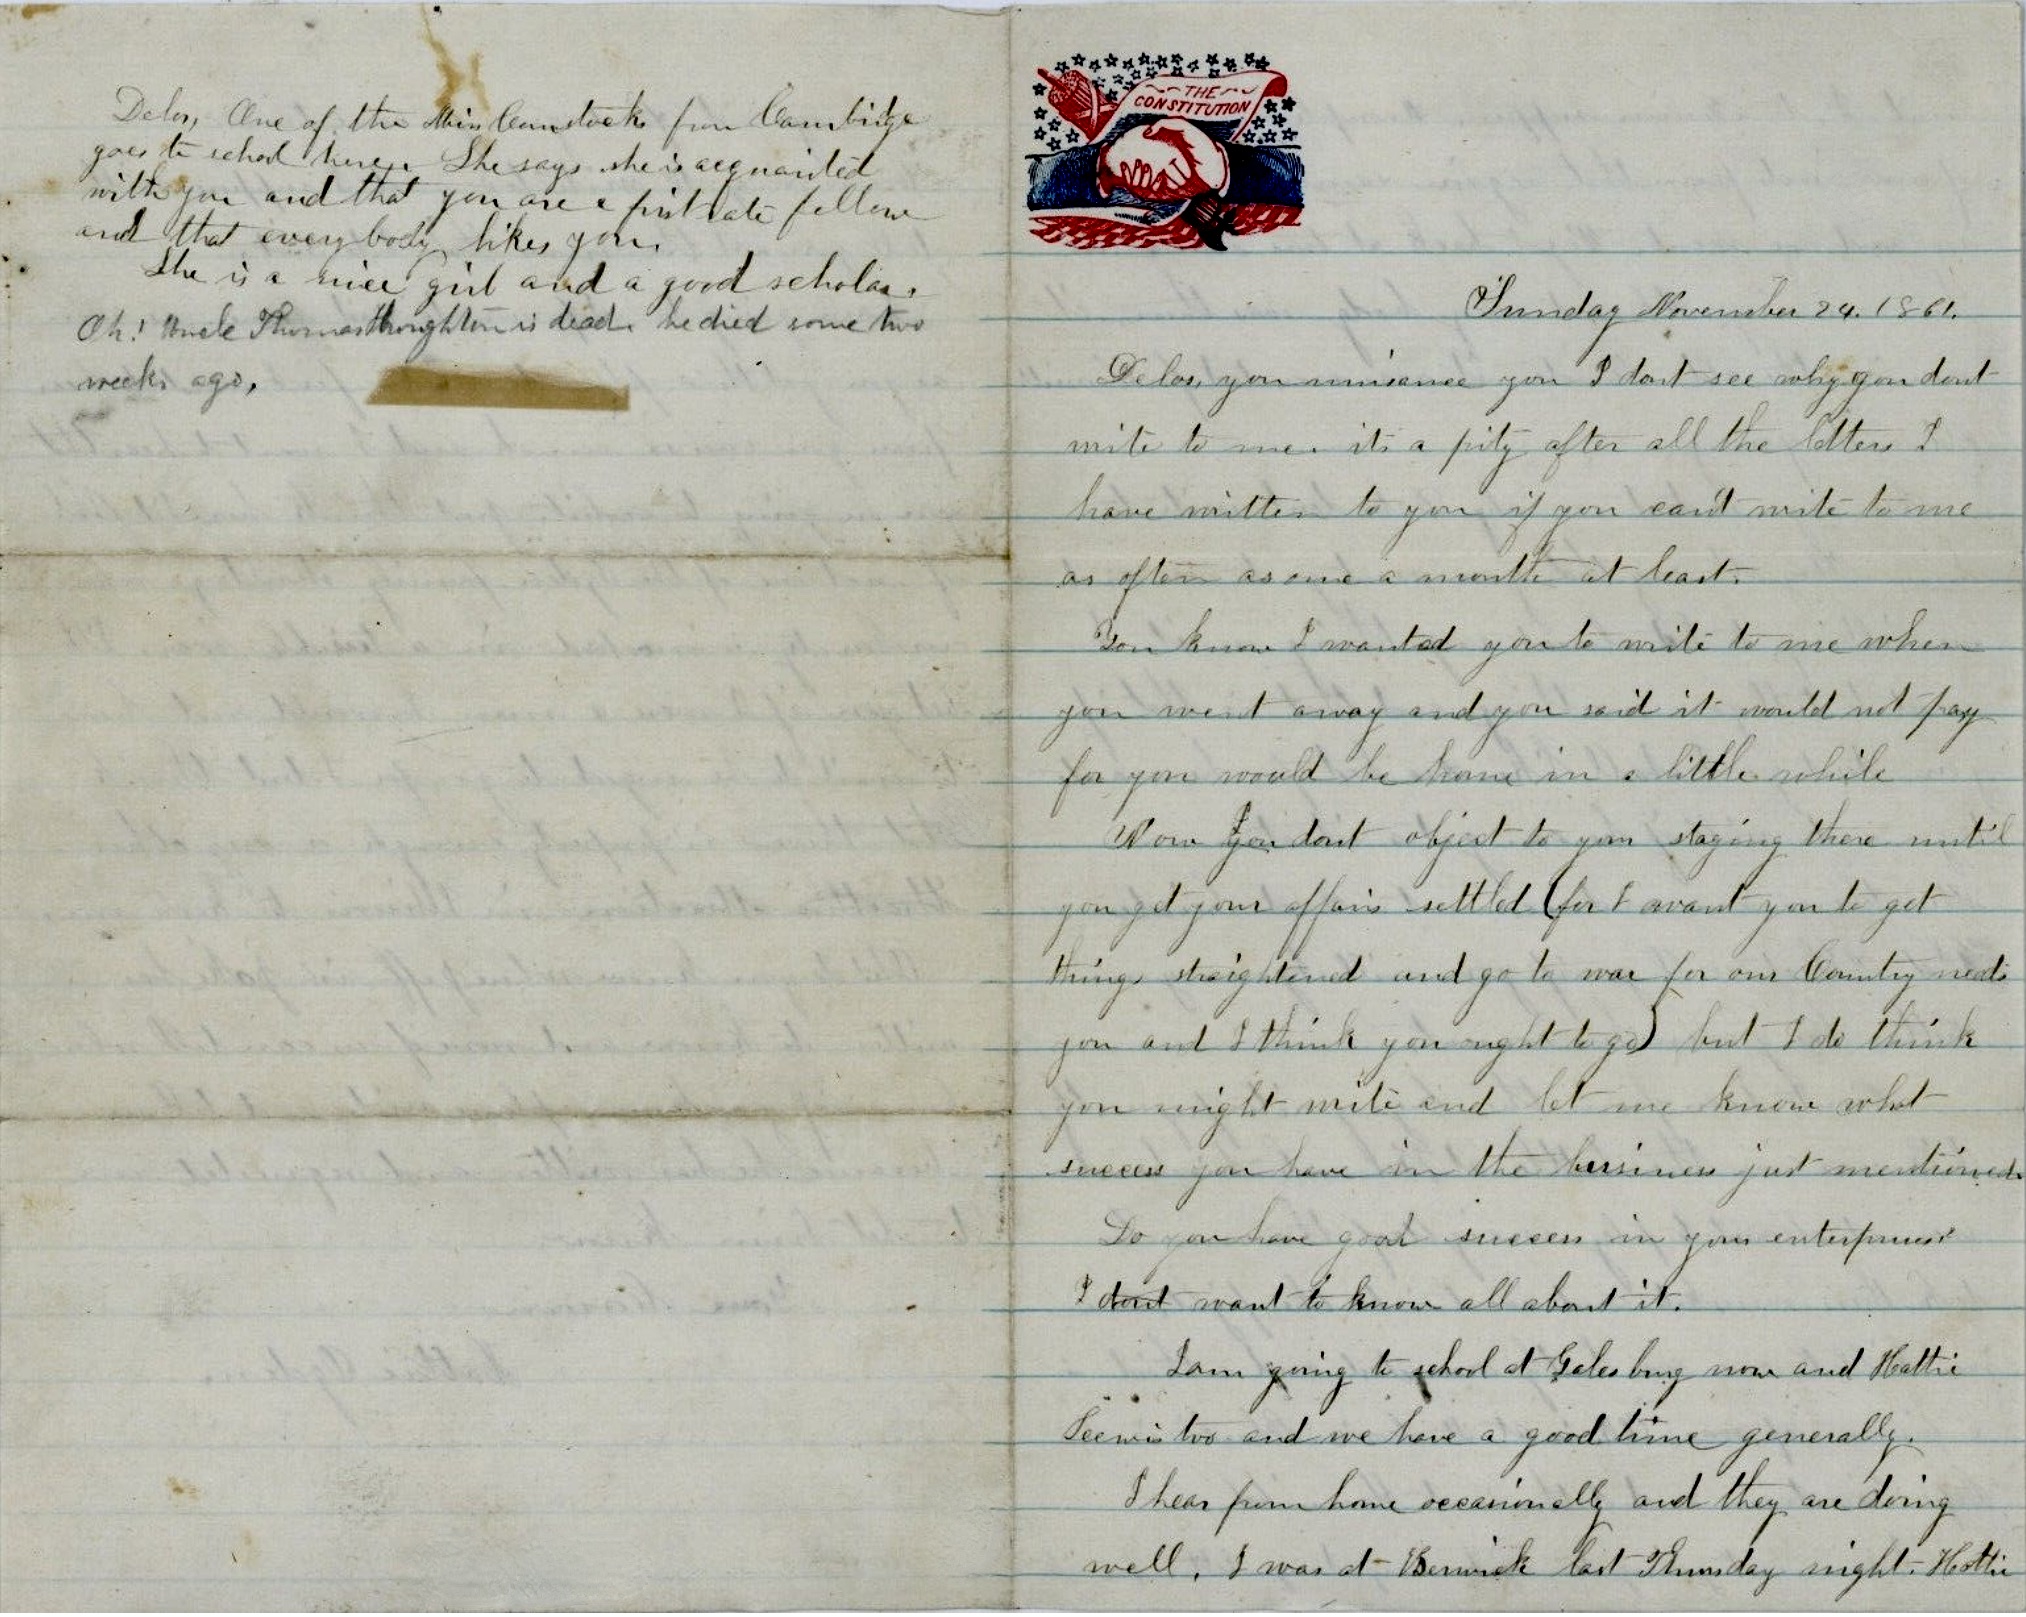 Delos, One of the Miss Comstocks from Cambridge
goes to school here. She says she is acquainted
with you and that you are a first rate fellow
and that everybody likes you.
She is a nice girl and a good scholar.
Oh! Uncle Thomas is dead. he died some two
weeks ago.
THE
CONSTITUTION
Sunday November 24. 1861.
Delos, you nuisance you I dont see why you dont
write to me. its a pity after all the letters I
have written to you if you can't write to me
as often as once a month at least.
You know I wanted you to write to me when
you went away and you said it would not pay
for you would be home in a little while
Now I dont object to your staying there until
you get your affairs settled (for I want you to get
things straightened and go to war for our Country needs
you and I think you ought to go) but I do think
you might write and let me know what
success you have in the business just mentioned.
Do you have good success in your enterprise?
I dont want to know all about it.
I am going to school at Galesburg now and Hattie
Lewis too and we have a good time generally.
I hear from home occasionally and they are doing
well. I was at Berwick last Thursday night. Hattie